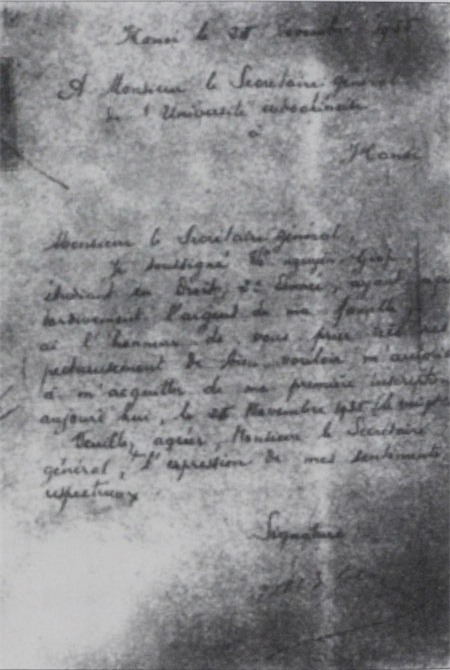 Hanoi le 28 Novembre 1935
A Monsieur le Secretaire général
de l'Université indochinoise
à
Hanoi
Monsieur le Secrétaire général,
Je soussigné
étudiant en Droit, 2e Année, ayant
tardivement l'argent de ma famille,
ai l'honneur de vous prier très res
pectueusement de bien vouloir m'autoris
à m'acquitter de ma première inscription
aujourd'hui, le 28 Novembre 1935
Veuillez agréer, Monsieur le Secrétaire
général, l'expression de mes sentiments
respectueux
Signature